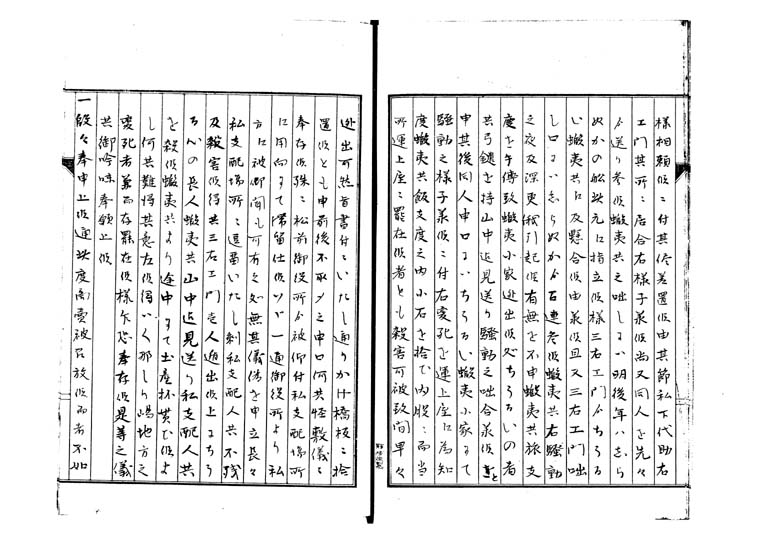 様相頼候ニ付其侭差置候由其節私下代助右
エ門其所ニ居合右様子承候尚又同人を先々
より送り参候蝦夷共之咄しニハ明後年ハ志ら
ぬかの船状元江指立候様三右エ門よりちうる
い蝦夷共江及懸合候由承候且又三右エ門咄
し口ニハ志らぬかより召連参候蝦夷共右騒動
之夜及深更船引起候有無を不申蝦夷共旅支
度を午傳致蝦夷小家逃出候処ちうるいの者
共弓鎗を持山中迄見送り騒動之咄合承候
申其後同人申口ニハちうるい蝦夷小家ニて
騒動之様子承候ニ付右変死を運上屋江為知
度蝦夷共飯支度之内小石を拾ひ内股ニ而当
所運上屋ニ罷在候者とも殺害可被致間早々
逃出可然旨書付ニいたし通りかけ橋板ニ捨
置候とも申前後不取〆之申口何共怪敷儀ニ
奉存候殊ニ松前御役所より被仰付私支配場所
江用向ニて滞留仕候ハヽ一通御役所より私
方江被仰聞も可有之処無其儀偽を申立長々
私支配場所ニ逗留いたし剰私支配人共不残
及殺害候得共三右エ門壱人遁出候上ニちう
るいの長人蝦夷共山中迄見送り私支配人共
を殺候蝦夷共より途中ニて土産杯貰ひ候よ
し何共難得其意左候得ハくなしり嶋地方之
変死者等而存罷在候様乍恐奉存候是等之儀
共御吟味奉願上候
一段々奉申上候通此度商売被召放候而者不如